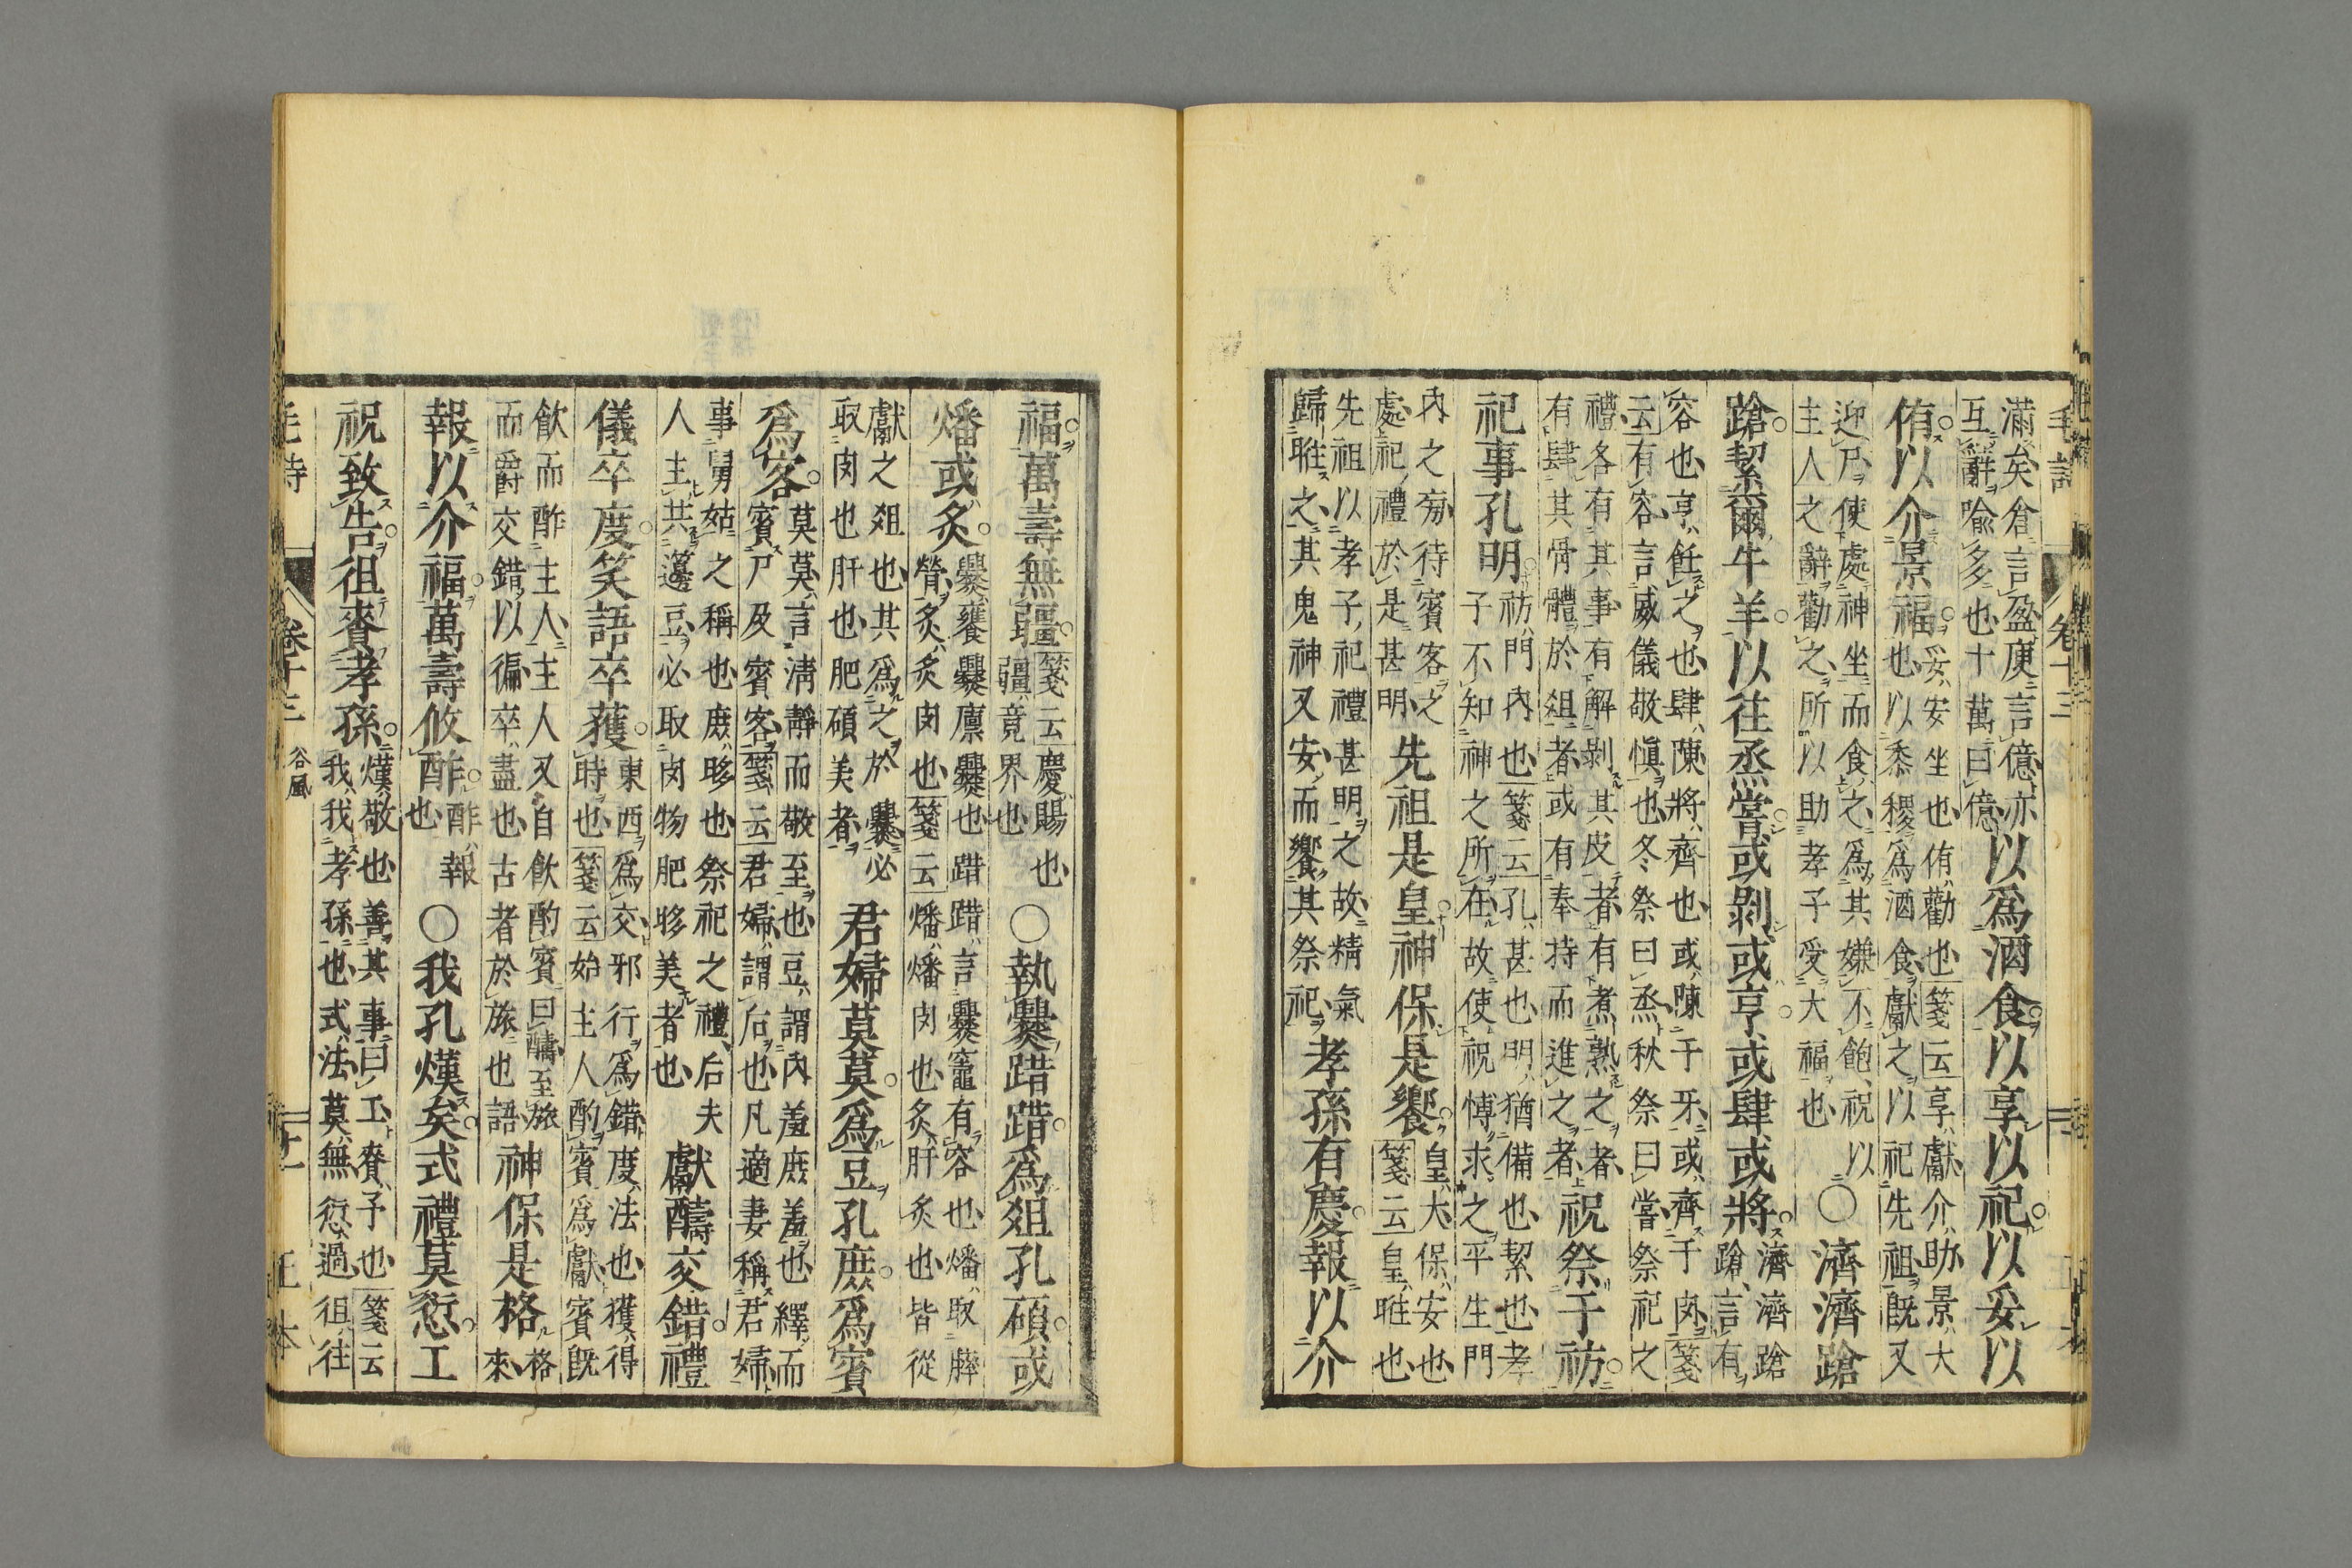 滿矣倉言盈庾言億亦
互辭喩多也十萬曰億
以爲酒食以享以祀以妥以
侑以介景福
妥安坐也侑勸也箋云享獻介助景大
也以黍稷爲酒食獻之以祀先祖既又
迎尸使處神坐而食之爲其嫌不飽祝以
主人之辭勸之所以助孝子受大福也
○濟濟蹌
蹌絜爾牛羊以往烝嘗或剝或亨或肆或將
濟濟蹌
蹌言有
容也亨飪之也肆陳將齊也或陳于牙或齊于肉箋
云有容言威儀敬愼也冬祭曰烝秋祭曰嘗祭祀之
禮各有其事有解剝其皮者有煮熟之者
有肆其骨體於俎者或有奉持而進之者
祝祭于祊
祀事孔明
祊門內也箋云孔甚也明猶備也絜也孝
子不知神之所在故使祝博求之平生門
內之旁待賓客之
處祀禮於是甚明
先祖是皇神保是饗
皇大保安也
箋云皇暀也
先祖以孝子祀禮甚明之故精氣
歸暀之其鬼神又安而饗其祭祀
孝孫有慶報以介
福萬壽無疆
箋云慶賜也
疆竟界也
○執爨踖踖爲俎孔碩或
燔或炙
爨饔爨廩爨也踖踖言爨竈有容也燔取膟
膋炙炙肉也箋云燔燔肉也炙肝炙也皆從
獻之俎也其爲之於爨必
取肉也肝也肥碩美者
君婦莫莫爲豆孔庶爲賓
爲客
莫莫言淸靜而敬至也豆謂內羞庶羞也繹而
賓尸及賓客箋云君婦謂后也凡適妻稱君婦
事舅姑之稱也庶䏧也祭祀之禮后夫
人主共籩豆必取肉物肥䏧美者也
獻醻交錯禮
儀卒度笑語卒獲
東西爲交邪行爲錯度法也獲得
時也箋云始主人酌賓爲獻賓既
飮而酢主人主人又自飮酌賓曰醻至旅
而爵交錯以徧卒盡也古者於旅也語
神保是格
格
來
報以介福萬壽攸酢
酢報
也
○我孔熯矣式禮莫愆工
祝致告徂賚孝孫
熯敬也善其事曰工賚予也箋云
我我孝孫也式法莫無愆過徂往
毛詩 卷十三 谷風